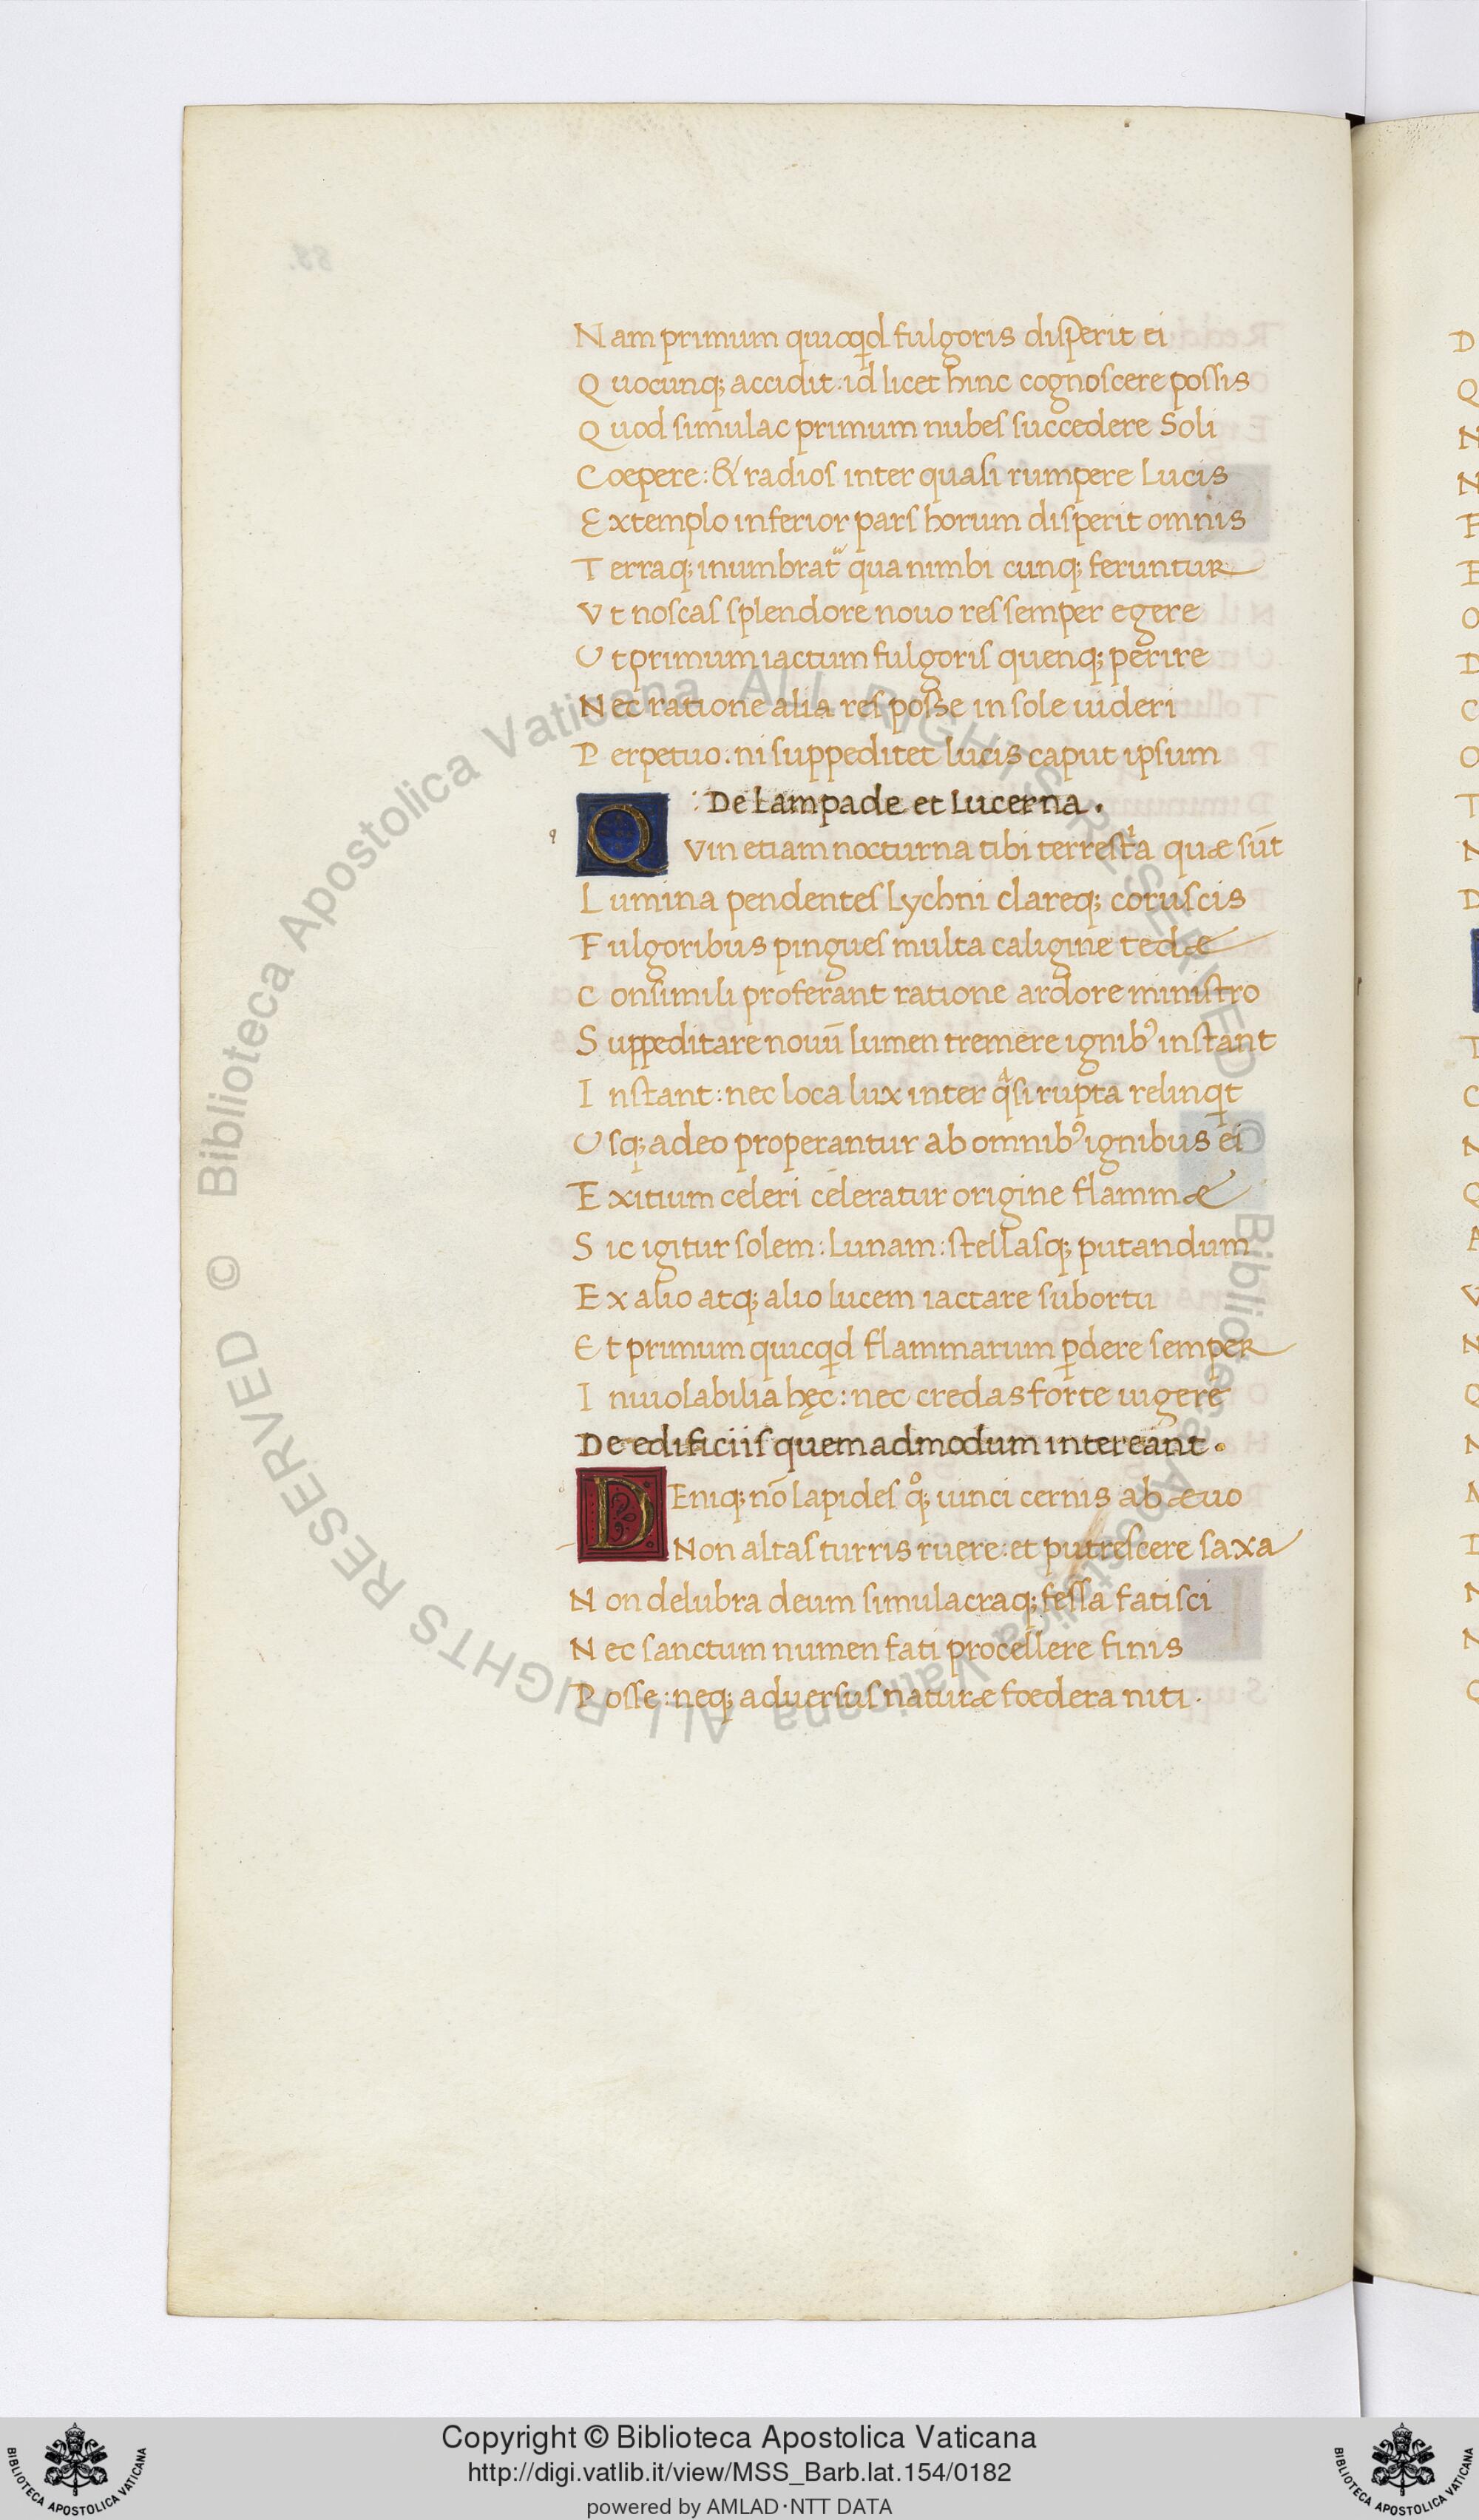 Nam primum quicqd fulgoris disperit ei
Quocunq; accidit: id licet hinc cognoscere possis
Quod simulac primum nubes succedere Soli
Coepere: & radios inter quasi rumpere Lucis
Extemplo inferior pars horum disperit omnis
Terraq; inumbrat᷑ qua nimbi cunq; feruntur
Vt noscas splendore nouo res semper egere
Ut primum iactum fulgoris quenq; perire
Nec ratione alia res posse in sole uideri
Perpetuo: ni suppeditet lucis caput ipsum
De Lampade et Lucerna.
q
QVin etiam nocturna tibi terrestͥa quæ sūt
Lumina pendentes Lychni clareq; coruscis
Fulgoribus pingues multa caligine tedæ
Consimili proferant ratione ardore ministro
Suppeditare nouū lumen tremere ignibꝰ instant
Instant: nec loca lux inter qͣsi rupta relinqt
Usq; adeo properantur ab omnibꝰ ignibus ei
Exitium celeri celeratur origine flammæ
Sic igitur solem: Lunam: stellasq; putandum
Ex alio atq; alio lucem iactare subortu
Et primum quicqd flammarum ꝑdere semper
Inuiolabilia hęc: nec credas forte uigere
De edificiis quemadmodum intereant.
DEniq; nō lapides qͦq; uinci cernis ab æuo
Non altas turris ruere: et putrescere saxa
Non delubra deum simulacraq; fessa fatisci
Nec sanctum numen fati procellere finis
Posse: neq; aduersus naturæ foedera niti.
© Biblioteca Apostolica Vaticana ALL RIGHTS RESERVED
© Biblioteca Apostolica Vaticana ALL RIGHTS RESERVED
Copyright © Biblioteca Apostolica Vaticana
http://digi.vatlib.it/view/MSS_Barb.lat.154/0182
powered by AMLAD·NTT DATA
BIBLIOTECA APOSTOLICA VATICANA
BIBLIOTECA APOSTOLICA VATICANA